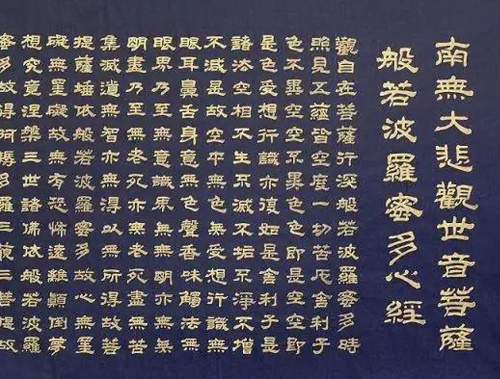 南無大悲觀世音菩薩
般若波羅蜜多心經
觀自在菩薩行深般若波羅蜜多時
照見五蘊皆空度一切苦厄舍利子
色不異空空不異色色即是空空即
是色受想行識亦復如是舍利子是
諸法空相不生不滅不垢不淨不增
不減是故空中無色無受想行識無
眼耳鼻舌身意無色聲香味觸法無
眼界乃至無意識界無無明亦無無
明盡乃至無老死亦無老死盡無苦
集滅道無智亦無得以無所得故菩
提薩埵依般若波羅蜜多故心無罣
礙無罣礙故無有恐怖遠離顛倒夢
想究竟涅槃三世諸佛依般若波羅
蜜多故得阿耨多羅三藐三菩提故